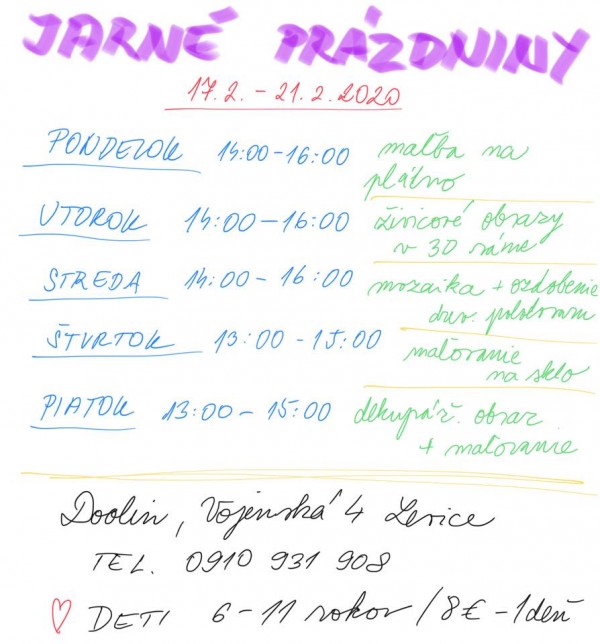 JARNÉ PRÁZDNINY
17.2. - 21.2.2020
PONDELOK 14:00-16:00 maľba na
plátno
UTOROK 14:00-16:00 živicové obrazy
v 3D ráme
STREDA 14:00-16:00 mozaika + ozdobenie
drev. polotovaru
ŠTVRTOK 13:00-15:00 maľovanie
na sklo
PIATOK 13:00-15:00 dekupáž. obraz
+ maľovanie
Doolin, Vojenská 4 Levice
TEL. 0910 931 908
DETI 6-11 rokov / 8€ - 1deň